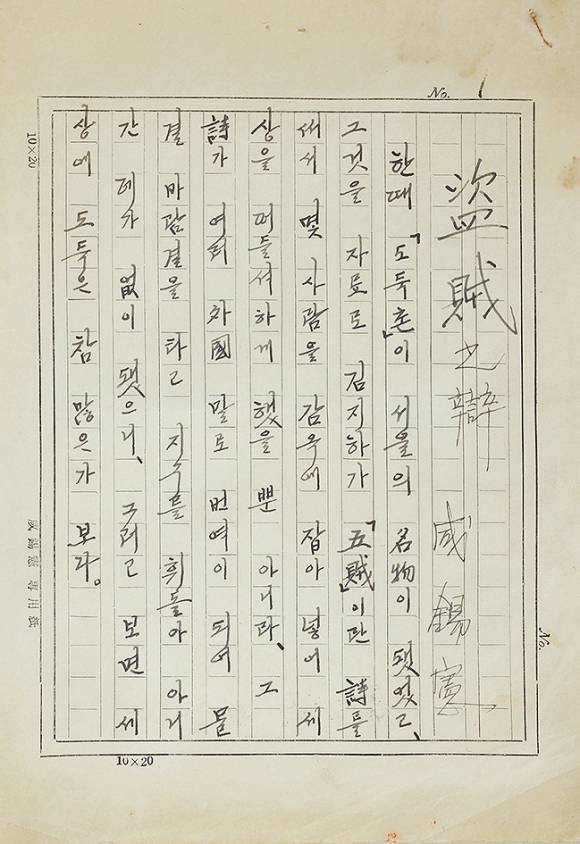 No. 1
盜賊之辯 咸錫憲
한때 「도둑촌」이 서울의 名物이 됐었고,
그것을 자료로 김지하가 「五賊」이란 詩를
써서 몇 사람을 감옥에 잡아 넣어 세
상을 떠들석하게 했을 뿐 아니라, 그
詩가 여러 外國말로 번역이 되어 물
결 바람결을 타고 지구를 휘돌아 아니
간 데가 없이 됐으니, 그러고 보면 세
상에 도둑은 참 많은가 보다.
10×20
咸錫憲專用紙
No.
10×20